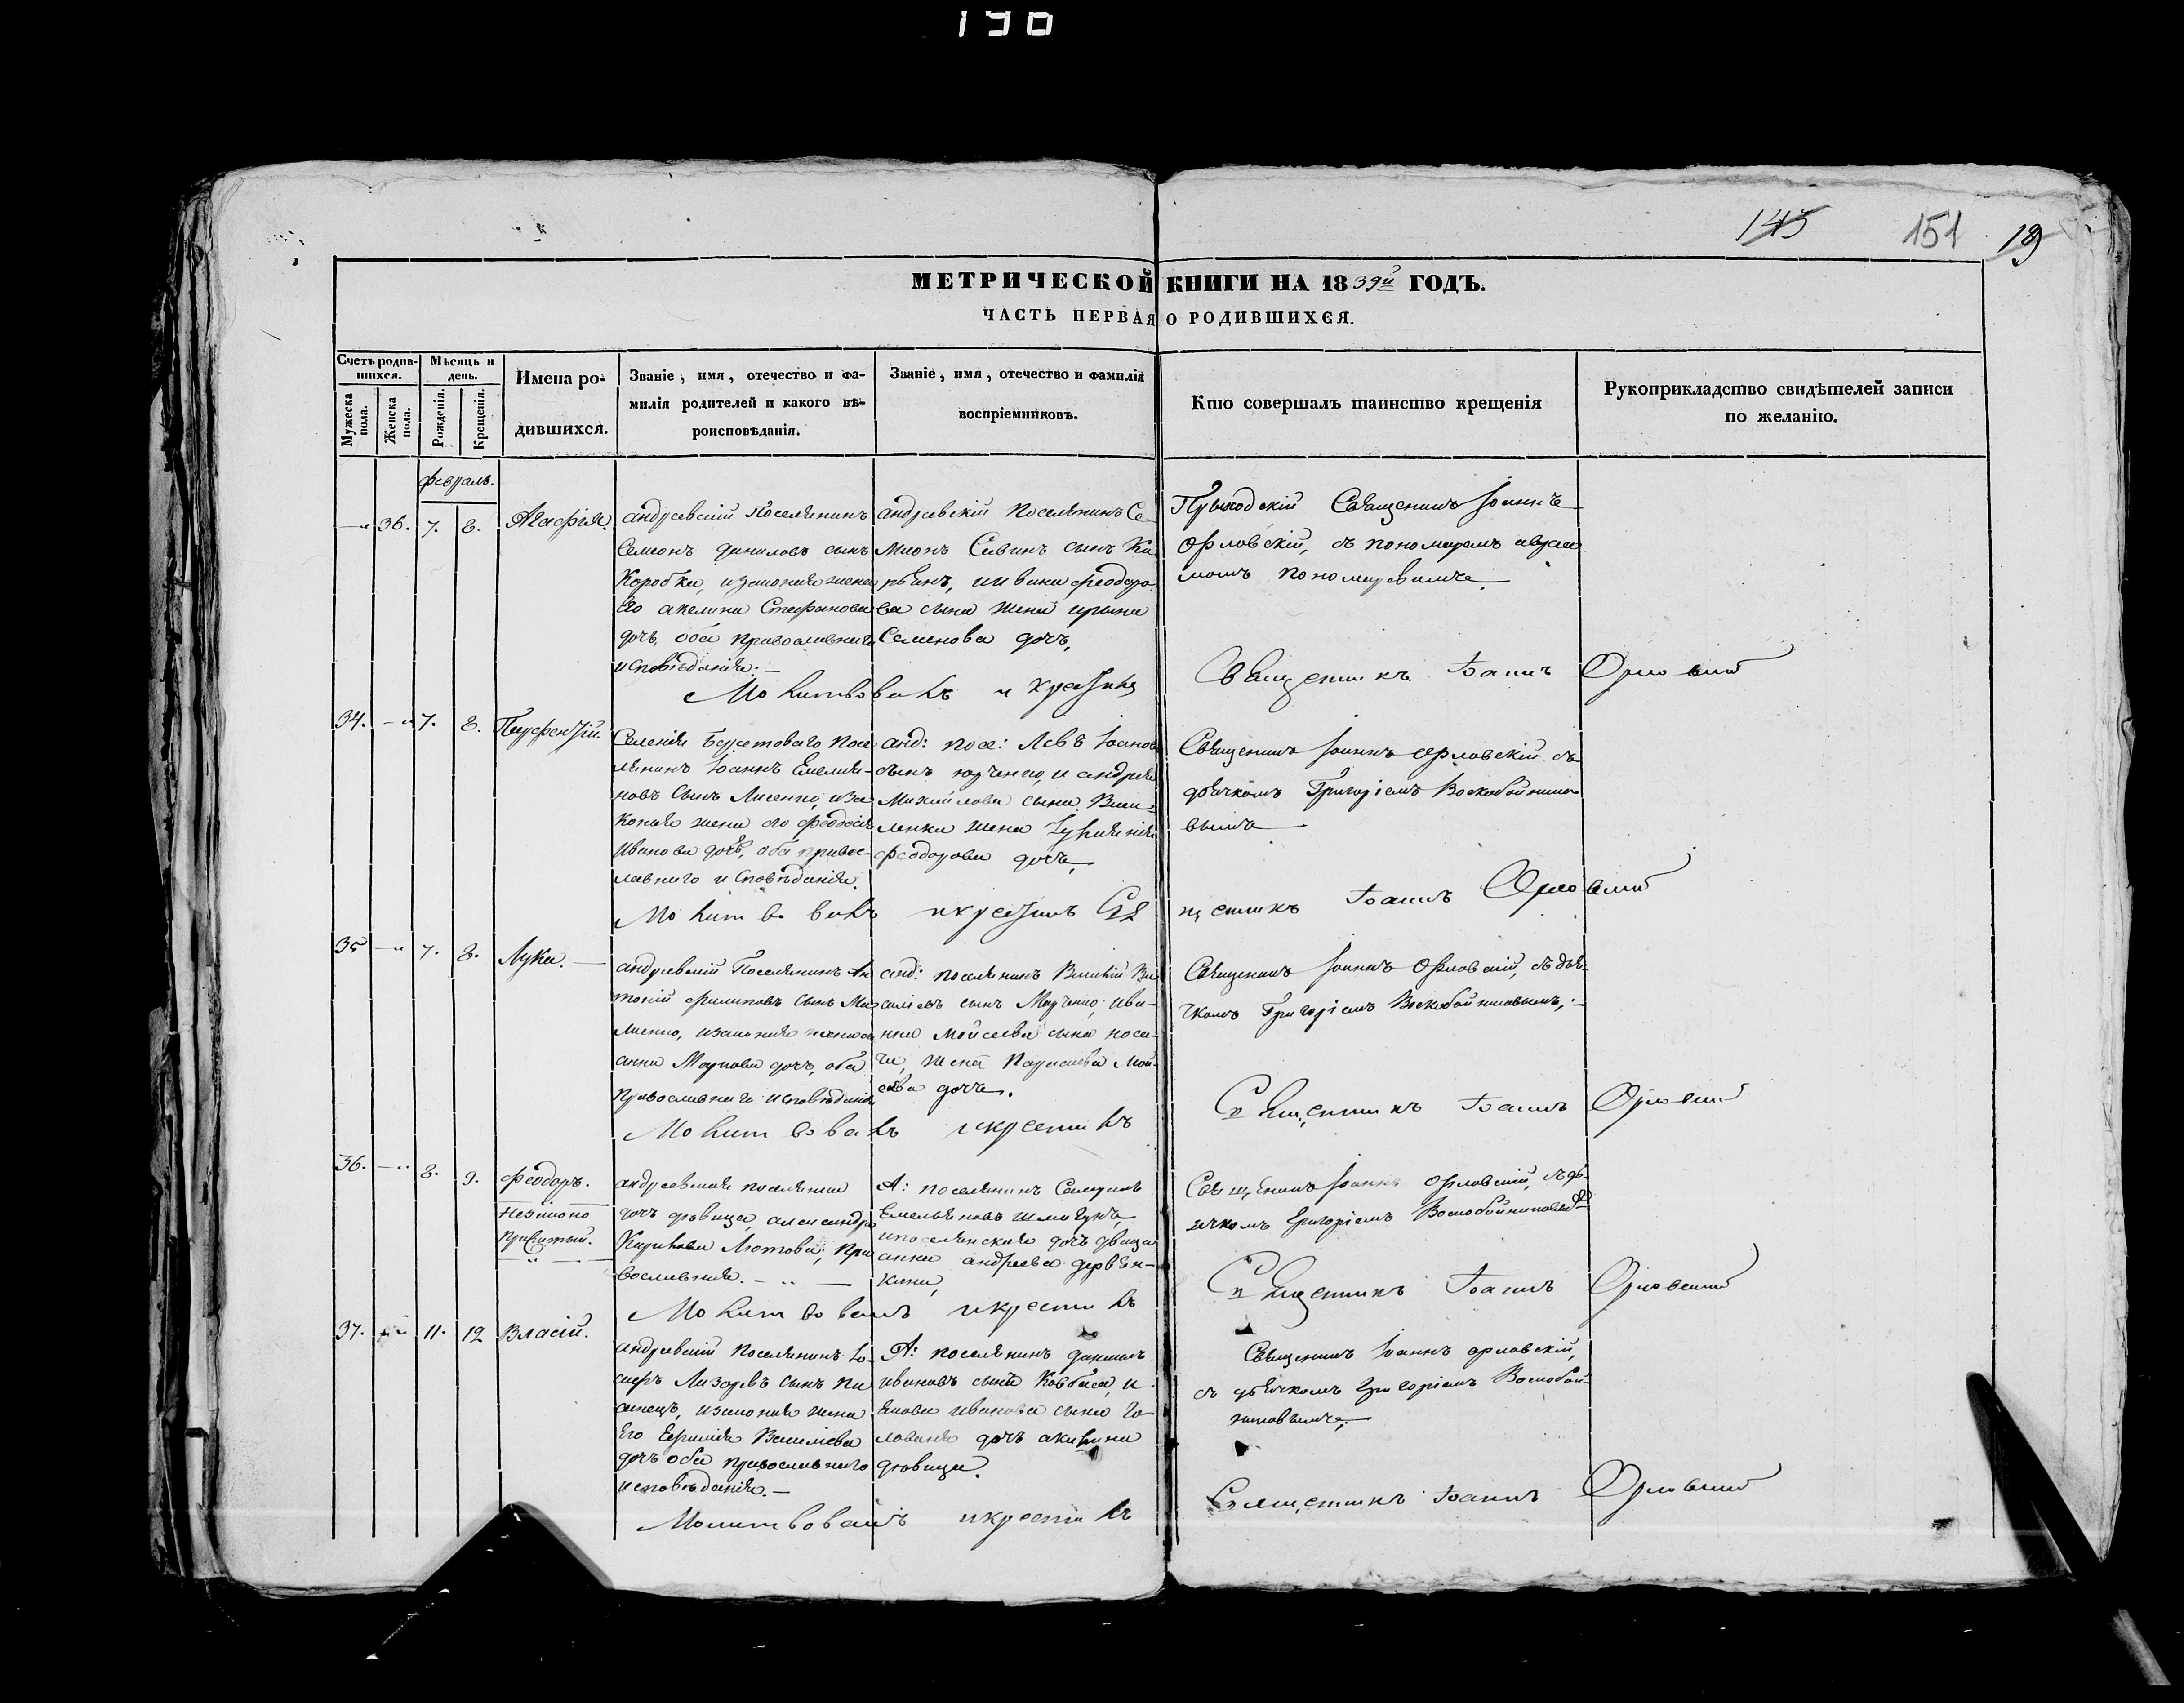 190
145 151 19
МЕТРИЧЕСКОЙ КНИГИ НА 1839й ГОДЪ.
ЧАСТЬ ПЕРВАЯ О РОДИВШИХСЯ.
Счетъ родившихся.
Мужеска пола.
Женска пола.
Мѣсяцъ и день.
Рожденія.
Крещенія.
Имена родившихся.
Званіе, имя, отечество и фамилія родителей и какого вѣроисповѣданія.
Званіе, имя, отечество и фамилія воспріемниковъ.
Кто совершалъ таинство крещенія
Рукоприкладство свидѣтелей записи по желанію.
февраль.
36. 7. 8. Агафія.
андреевскій Поселянинъ
Семіонъ даниловъ сынъ
Коробка, изаконная жена
его акелина Стефанова
дочь, оба православнаго
исповѣданія.
андреевскій поселянинъ Се
міонъ Савинъ сынъ
феодоро
ва сына жена ирина
Семенова дочь,
Приходскій Священникъ Іоаннъ
Орловскій, съ пономаремъ
Молитвовалъ и крестилъ Священникъ Іоаннъ Орловскій
34. 7. 8. Парфентій.
Селенія Бересто́ваго посе
лянинъ Іоаннъ Емелия-
новъ Сынъ Лисенко, иза
конная жена его феодосія
Иванова дочь, оба правос-
лавнаго исповѣданія.
анд: посе: Левъ Іоановъ
сынъ юрченко, и андрея
Михайлова сына Васи-
ленка жена
феодорова дочь,
Священникъ Іоаннъ орловскій съ
дьячкомъ Григоріемъ Воскобойнико-
вымъ
Молитвовалъ и крестилъ Священникъ Іоаннъ Орловскій
35 7. 8. Лука.
андреевскій Поселянинъ Ан
тоній филиповъ сынъ Ми
, изаконная жена его
анна Маркова дочь, оба
Православнаго исповѣданія
анд: поселянинъ Василій Ва
силіевъ сынъ Марченко, ива-
на Мойсеева сына носа-
ча, жена Параскева Мой-
сеева дочь.
Священникъ Іоаннъ Орловскій, съ дья-
чкомъ Григоріемъ Воскобойниковымъ,
Молитвовалъ и крестилъ Священникъ Іоаннъ Орловскій
36. 8. 9. феодоръ.
незаконо
прижитый.
андреевская поселянка
дочь дѣвица, александра
Кирилова Лютова; пра
вославная.
А: поселянинъ Самуилъ
Емельяновъ
ипоселянская дочь дѣвица
анна андреева
Священникъ Іоаннъ Орловскій, съ дь-
ячкомъ Григоріемъ Воскобойниковымъ
Молитвовалъ и крестилъ Священникъ Іоаннъ Орловскій
37. 11. 12 Власій.
андреевскій поселянинъ Іо-
сифъ Лазаревъ сынъ Пи
санецъ, изаконная жена
Его Ефимія Василіева
дочь оба православнаго
исповѣданія.
А: поселянинъ даніилъ
ивановъ сынъ Ковбаса, и
якова иванова сына Го
дочь акилина
дѣвица.
Священникъ Іоаннъ орловскій,
съ дьячкомъ Григоріемъ Воскобой-
никовымъ,
Молитвовалъ и крестилъ Священникъ Іоаннъ Орловскій